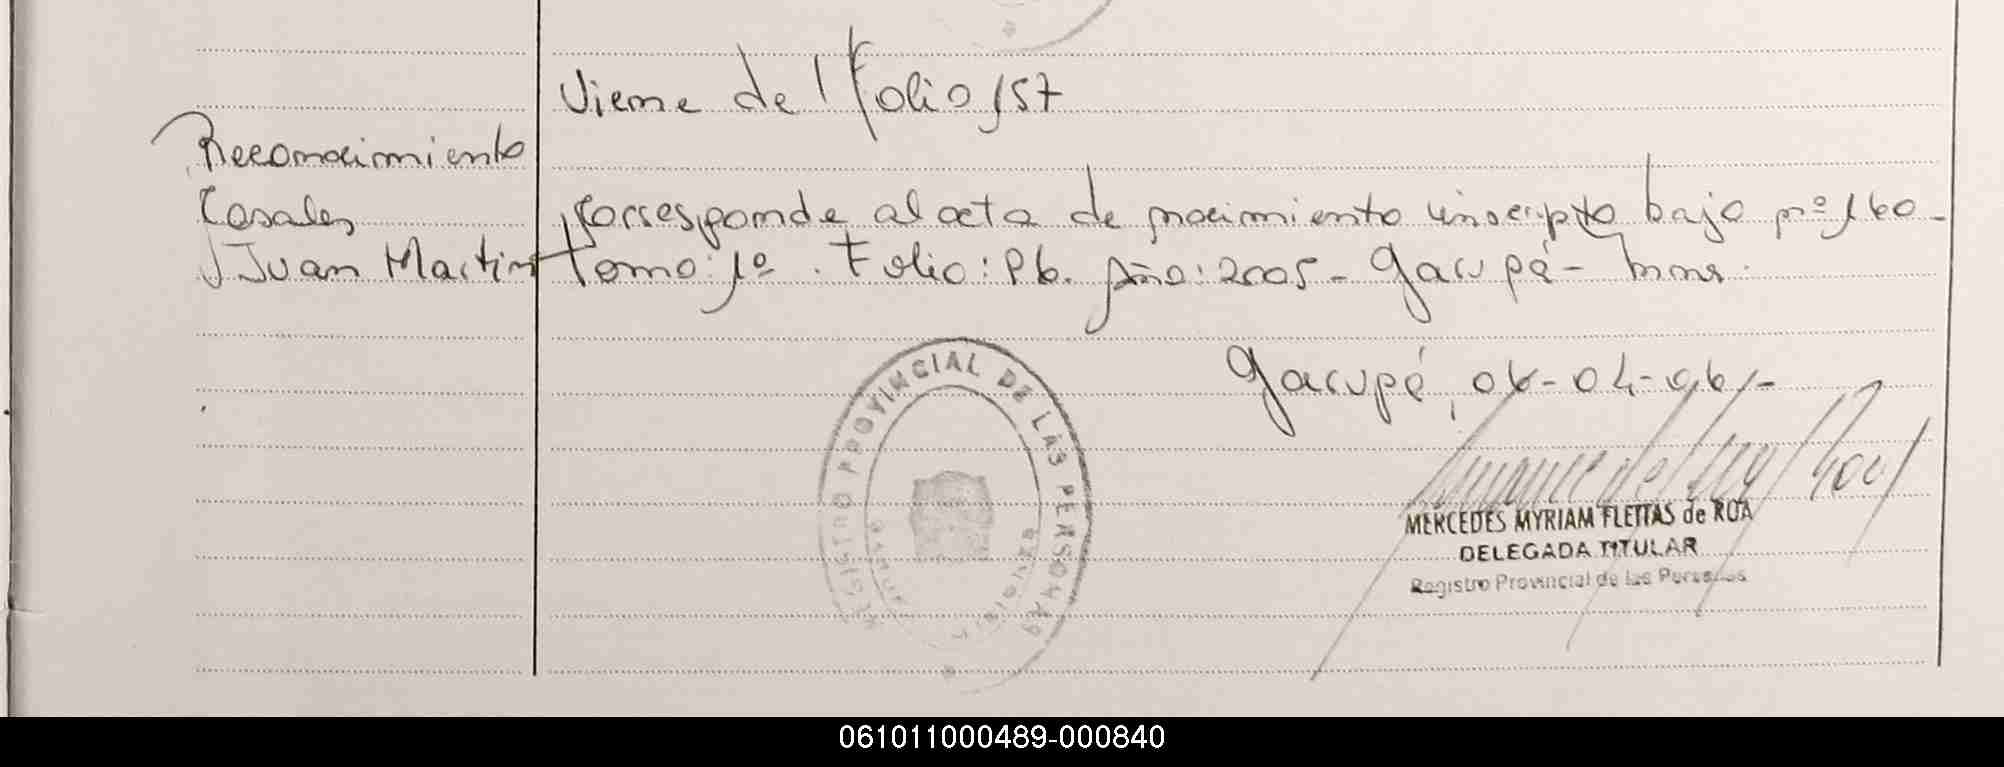 Viene del Folio 157
Reconocimiento
Casales
Juan Martin
Corresponde al acta de nacimiento inscripto bajo nº 160-
Tomo: 1º. Folio: 86. Año: 2005- Garupá- Mnes.
Garupá, 06-04-06/-
REGISTRO PROVINCIAL DE LAS PERSONAS
MERCEDES MYRIAM FLEITAS de ROA
DELEGADA TITULAR
Registro Provincial de las Personas
061011000489-000840